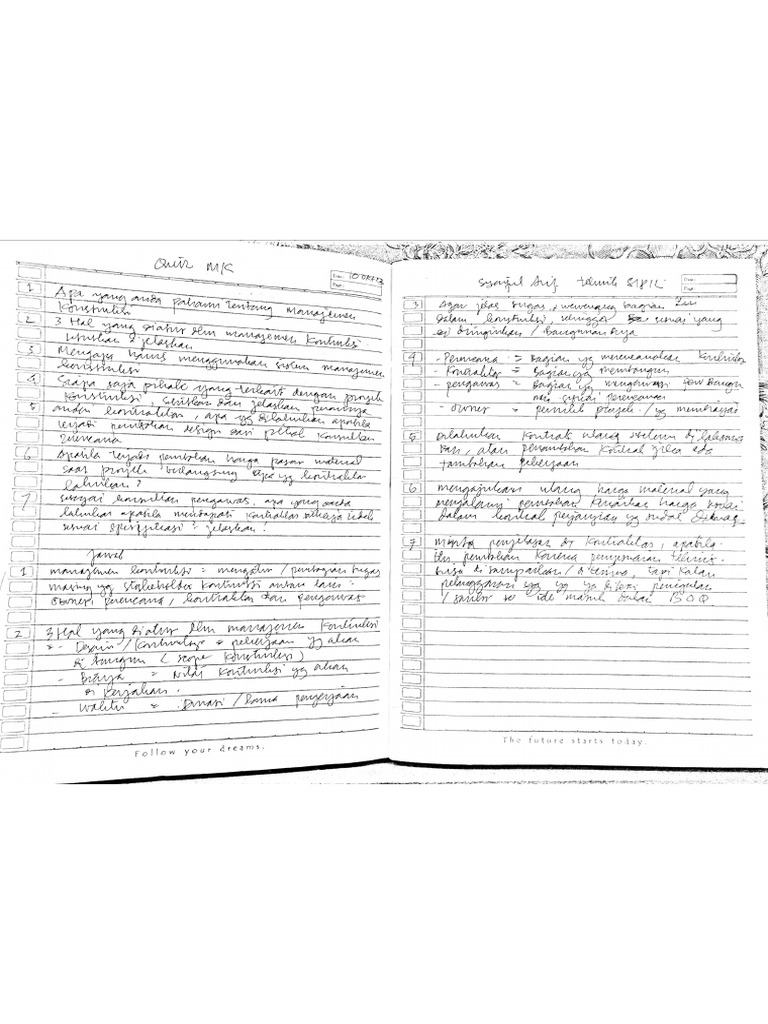 Quiz MK
1 Apa yang anda pahami tentang manajemen
Konstruksi
2 3 Hal yang diatur dlm manajemen Kontruksi.
sebutkan & jelaskan
3 Mengapa harus menggunakan sistem manajemen
konstruksi
4 Siapa saja pihak yang terkait dengan proyek
konstruksi, sebutkan dan jelaskan perannya
5 anda kontraktor, apa yg dilakukan apabila
terjadi perubahan design dari pihak konsultan
rencana
6 Apabila terjadi perubahan harga pasar material
saat proyek berlangsung apa yg kontraktor
lakukan?
7 sebagai konsultan pengawas, apa yang anda
lakukan apabila mendapati kontraktor bekerja tidak
sesuai spesifikasi = jelaskan!
Jawab
1 manajemen kontruksi = mengatur / pembagian tugas
masing yg stakeholder kontruksi antara lain:
owner, perencana, kontraktor dan pengawas
2 3 Hal yang diatur dlm manajemen Kontruksi
- Desain / = pekerjaan yg akan
di bangun (scope Kontruksi)
- Biaya = Nilai Kontruksi yg akan
di kerjakan.
- Waktu = Durasi / lama pengerjaan
Follow your dreams.
Syaiful Arif teknik SIPIL
3 Agar jelas tugas, wewenang bagian
dalam konstruksi sehingga sesuai yang
di inginkan / bangunan
4 - Perencana = bagian yg merencanakan
- Kontraktor = bagian yg membangun
- pengawas = bagian yg mengawasi
sesuai perencanaan
- owner = pemilik proyek / yg membiayai
5 dilakukan kontrak ulang sebelum di laksana
kan, atau penambahan kontrak jika ada
tambahan pekerjaan
6 mengajukan ulang harga material yang
mengalami perubahan harga
dalam kontrak perjanjian yg sudah
7 minta penjelasan dr Kontraktor, apabila
itu perubahan karena penyesuaian teknis
bisa di sampaikan / diterima, tapi kalau
pelanggaran yg